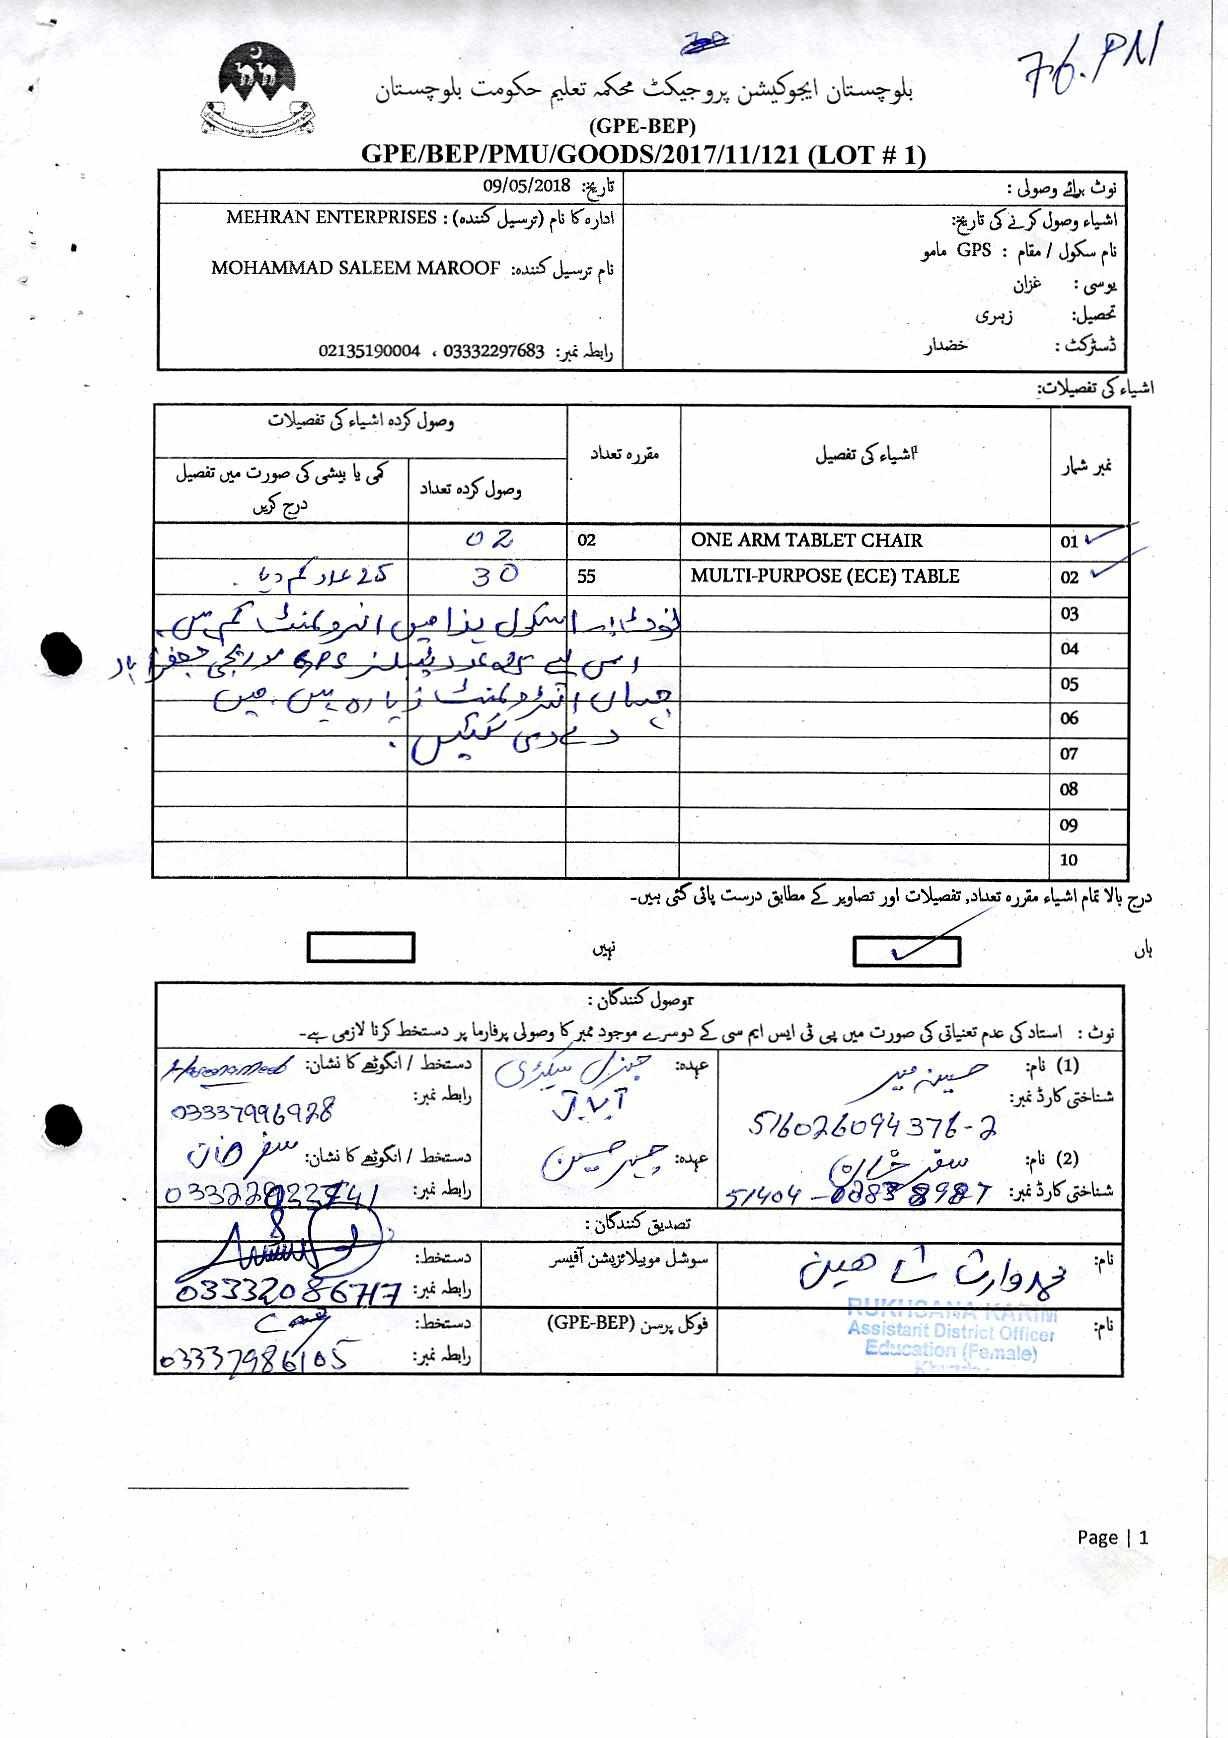 76.PM
بلوچستان ایجوکیشن پروجیکٹ محکمہ تعلیم حکومت بلوچستان
(GPE-BEP)
GPE/BEP/PMU/GOODS/2017/11/121 (LOT # 1)
نوٹ برائے وصولی :
تاریخ: 09/05/2018
اشیاء وصول کرنے کی تاریخ:
نام سکول / مقام : GPS مامو
یوسی : غزان
تحصیل: زہری
ڈسٹرکٹ : خضدار
ادارہ کا نام (ترسیل کنندہ) : MEHRAN ENTERPRISES
نام ترسیل کنندہ: MOHAMMAD SALEEM MAROOF
رابطہ نمبر: 03332297683 ، 02135190004
اشیاء کی تفصیلات:
نمبر شمار اشیاء کی تفصیل مقررہ تعداد وصول کردہ اشیاء کی تفصیلات
وصول کردہ تعداد کمی یا بیشی کی صورت میں تفصیل درج کریں
01 ONE ARM TABLET CHAIR 02 02
02 MULTI-PURPOSE (ECE) TABLE 55 30 25 عدد کم دیا
03
04
05
06
07
08
09
10
نوٹ: اسکول ہذا میں انرولمنٹ کم ہیں۔
اس لیے 25 عدد ٹیبلز GPS
جہاں انرولمنٹ زیادہ ہیں، میں
دے دی گئیں۔
درج بالا تمام اشیاء مقررہ تعداد, تفصیلات اور تصاویر کے مطابق درست پائی گئی ہیں۔
ہاں
نہیں
وصول کنندگان :
نوٹ : استاد کی عدم تعنیاتی کی صورت میں پی ٹی ایس ایم سی کے دوسرے موجود ممبر کا وصولی پرفارما پر دستخط کرنا لازمی ہے۔
(1) نام: حسین میر
شناختی کارڈ نمبر: 516026094376-2
عہدہ: جنرل سیکٹری
J.V.T
دستخط / انگوٹھے کا نشان:
رابطہ نمبر: 03337996928
(2) نام: سفر خان
شناختی کارڈ نمبر:
عہدہ: چیرمین
دستخط / انگوٹھے کا نشان: سفر خان
رابطہ نمبر:
تصدیق کنندگان :
نام: محمد وارث شاھین
سوشل موبیلائزیشن آفیسر
دستخط:
رابطہ نمبر: 03332086717
نام:
RUKHSANA KARIM
Assistant District Officer
Education (Female)
فوکل پرسن (GPE-BEP)
دستخط:
رابطہ نمبر: 03337986105
Page | 1